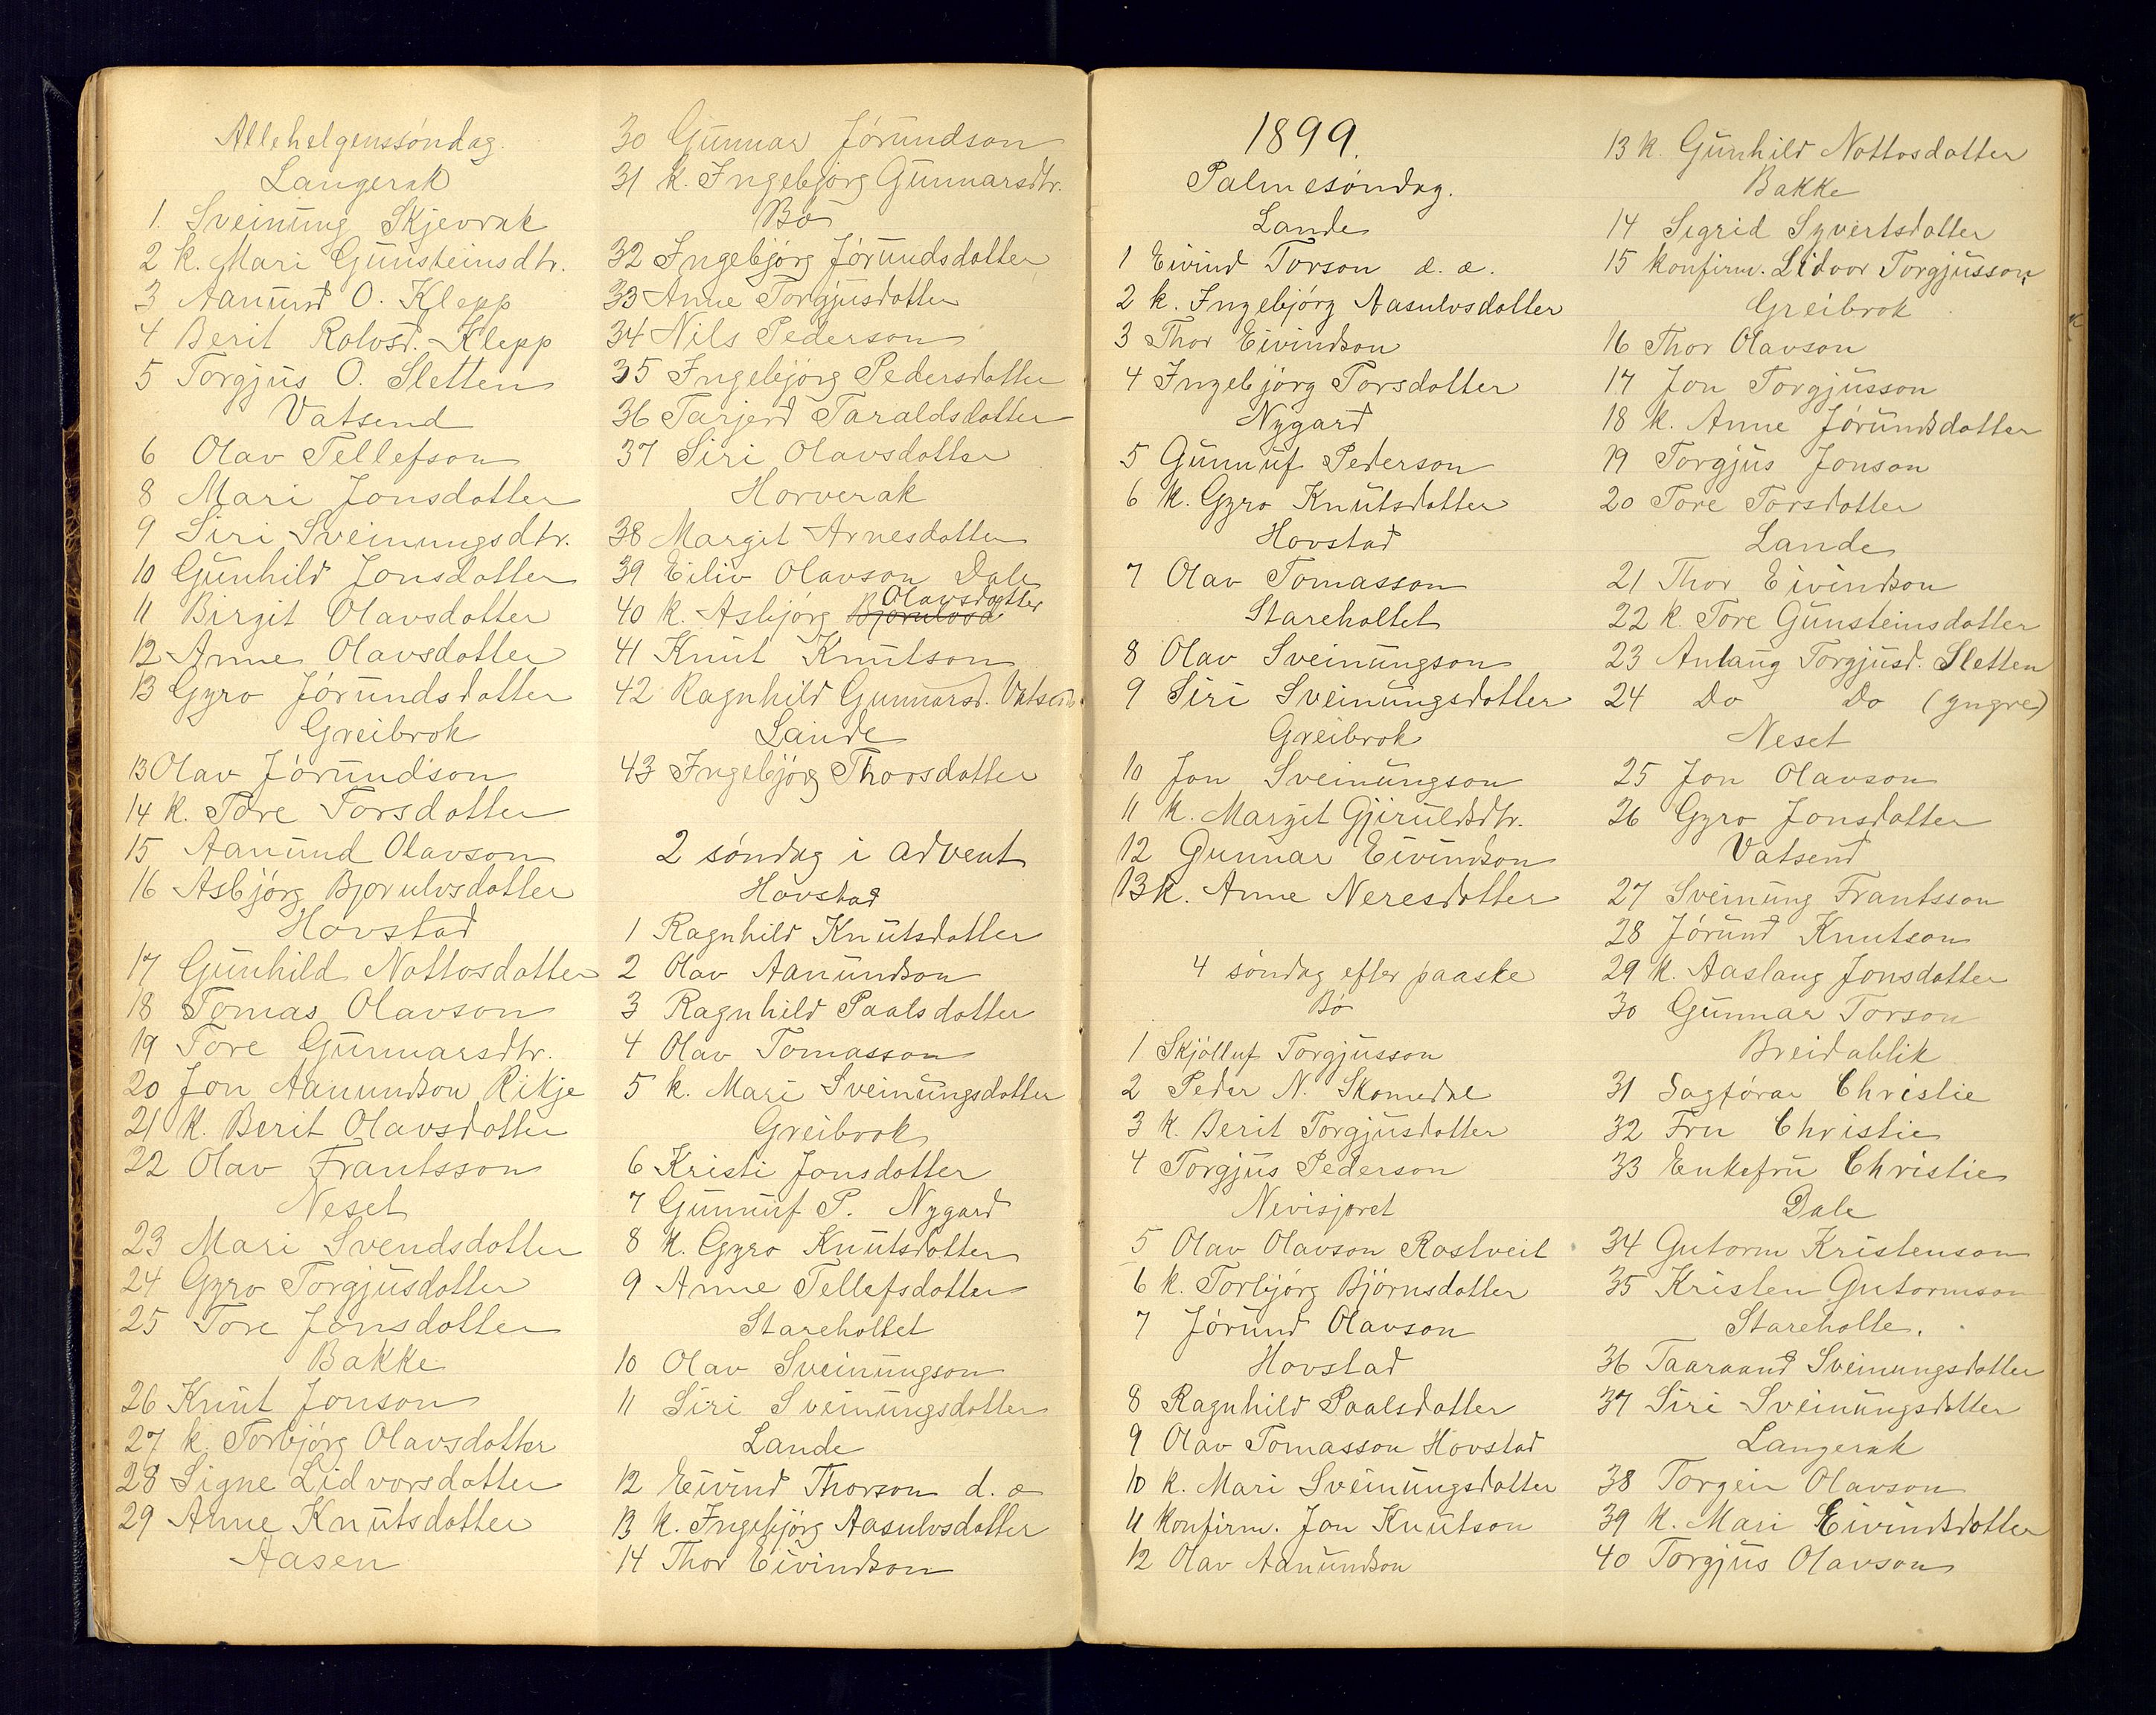 Allehelgenssóndag.
Langerak
1. Sveinung Skjevrak
2 k. Mari Gunsteinsdtr.
3 Aanund O. Klepp
4 Berit Rolvsd. Klepp
5 Torgjus O. Sletten
Vatsend
6 Olav Tellefson
8 Mari Jonsdotter
9 Siri Sveinungsdtr.
10 Gunhild Jonsdotter
11 Birgit Olavsdotter
12 Anne Olavsdotter
13 Gyro Jórundsdotter
Greibrok
13 Olav Jórundson
14 k. Tore Torsdotter
15 Aanund Olavson
16 Asbjórg Bjorulvsdotter
Hovstad
17 Gunhild Nottosdotter
18 Tomas Olavson
19 Tore Gunnarsdtr.
20 Jon Aanundson Rikje
21 k. Berit Olavsdotter
22 Olav Frantsson
Neset
23 Mari Svendsdotter
24 Gyro Torgjusdotter
25 Tore Jonsdotter
Bakke
26 Knut Jonson
27 k. Torbjórg Olavsdotter
28 Signe Lidvorsdotter
29 Anne Knutsdotter
Aasen
30 Gunnar Jórundson
31 k. Ingebjórg Gunnarsdtr.
Bó
32 Ingebjórg Jórundsdotter
33 Anne Torgjusdotter
34 Nils Pederson
35 Ingebjórg Pedersdotter
36 Tarjerd Taraldsdotter
37 Siri Olavsdotter
Horverak
38 Margit Arnesdotter
39 Eiliv Olavson Dale
40 k. Asbjórg Olavsdotter
41 Knut Knutson
42 Ragnhild Gunnarsd. Vatsend
Lande
43 Ingebjórg Thorsdotter
2 sóndag i advent
Hovstad
1 Ragnhild Knutsdotter
2 Olav Aanundson
3 Ragnhild Paalsdotter
4 Olav Tomasson
5 k. Mari Sveinungsdotter
Greibrok
6 Kristi Jonsdotter
7 Gunnuf P. Nygard
8 k. Gyro Knutsdotter
9 Anne Tellefsdotter
Stareholtet
10 Olav Sveinungson
11 Siri Sveinungsdotter
Lande
12 Eivind Thorson d. æ
13 k. Ingebjórg Aasulvsdotter
14 Thor Eivindson
1899.
Palmesóndag.
Lande
1 Eivind Torson d. æ.
2 k. Ingebjórg Aasulvsdotter
3 Thor Eivindson
4 Ingebjórg Torsdotter
Nygard
5 Gunnuf Pederson
6 k. Gyro Knutsdotter
Hovstad
7 Olav Tomasson
Stareholtet
8 Olav Sveinungson
9 Siri Sveinungsdotter
Greibrok
10 Jon Sveinungson
11 k. Margit Gjeruldsdtr.
12 Gunnar Eivindson
13 k. Anne Neresdotter
4 sóndag efter paaske
Bó
1 Skjólluf Torgjusson
2 Peder N. Skomedal
3 k. Berit Torgjusdotter
4 Torgjus Pederson
Nevisjoret
5 Olav Olavson Rostveit
6 k. Torbjórg Bjórnsdotter
7 Jórund Olavson
Hovstad
8 Ragnhild Paalsdotter
9 Olav Tomasson Hovstad
10 k. Mari Sveinungsdotter
11 konfirm. Jon Knutson
12 Olav Aanundson
13 k. Gunhild Nottosdotter
Bakke
14 Sigrid Syvertsdotter
15 konfirm. Lidvor Torgjusson
Greibrok
16 Thor Olavson
17 Jon Torgjusson
18 k. Anne Jórundsdotter
19 Torgjus Jonson
20 Tore Torsdotter
Lande
21 Thor Eivindson
22 k. Tore Gunsteinsdotter
23 Anlaug Torgjusd. Sletten
24 Do Do (yngre)
Neset
25 Jon Olavson
26 Gyro Jonsdotter
Vatsend
27 Sveinung Frantsson
28 Jórund Knutson
29 k. Aaslaug Jonsdotter
30 Gunnar Torson
Breidablik
31 Sagfórar Christie
32 Fru Christie
33 Enkefru Christie
Dale
34 Gutorm Kristenson
35 Kristen Gutormson
Stareholte.
36 Taaraand Sveinungsdotter
37 Siri Sveinungsdotter
Langerak
38 Torgeir Olavson
39 k. Mari Eivindsdotter
40 Torgjus Olavson